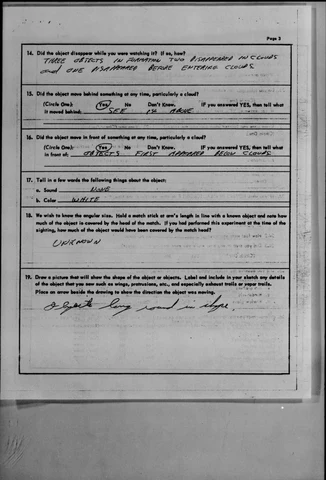 Page 3
14. Did the object disappear while you were watching it? If so, how?
THREE OBJECTS IN FORMATION TWO DISAPPEARED IN CLOUDS
and ONE DISAPPEARED BEFORE ENTERING CLOUDS
15. Did the object move behind something at any time, particularly a cloud?
(Circle One): Yes No Don't Know. IF you answered YES, then tell what
it moved behind: SEE 14 ABOVE
16. Did the object move in front of something at any time, particularly a cloud?
(Circle One): Yes No Don't Know. IF you answered YES, then tell what
in front of: OBJECTS FIRST APPEARED BELOW CLOUDS
17. Tell in a few words the following things about the object:
a. Sound NONE
b. Color WHITE
18. We wish to know the angular size. Hold a match stick at arm's length in line with a known object and note how
much of the object is covered by the head of the match. If you had performed this experiment at the time of the
sighting, how much of the object would have been covered by the match head?
UNKNOWN
19. Draw a picture that will show the shape of the object or objects. Label and include in your sketch any details
of the object that you saw such as wings, protrusions, etc., and especially exhaust trails or vapor trails.
Place an arrow beside the drawing to show the direction the object was moving.
Objects being round in shape.